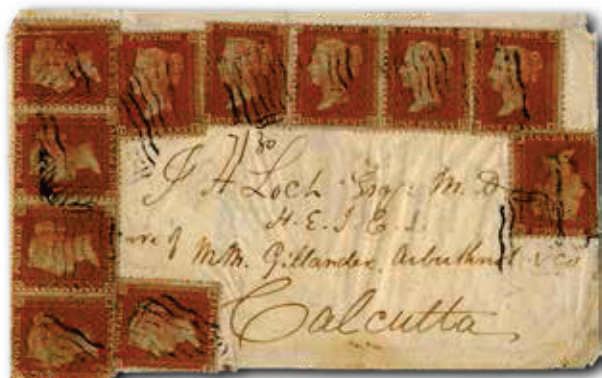 7/80
J A Loch Esqr M.D
H. E. I. C. S.
Care of M.M. Gillander, Arbuthnot & Co
Calcutta